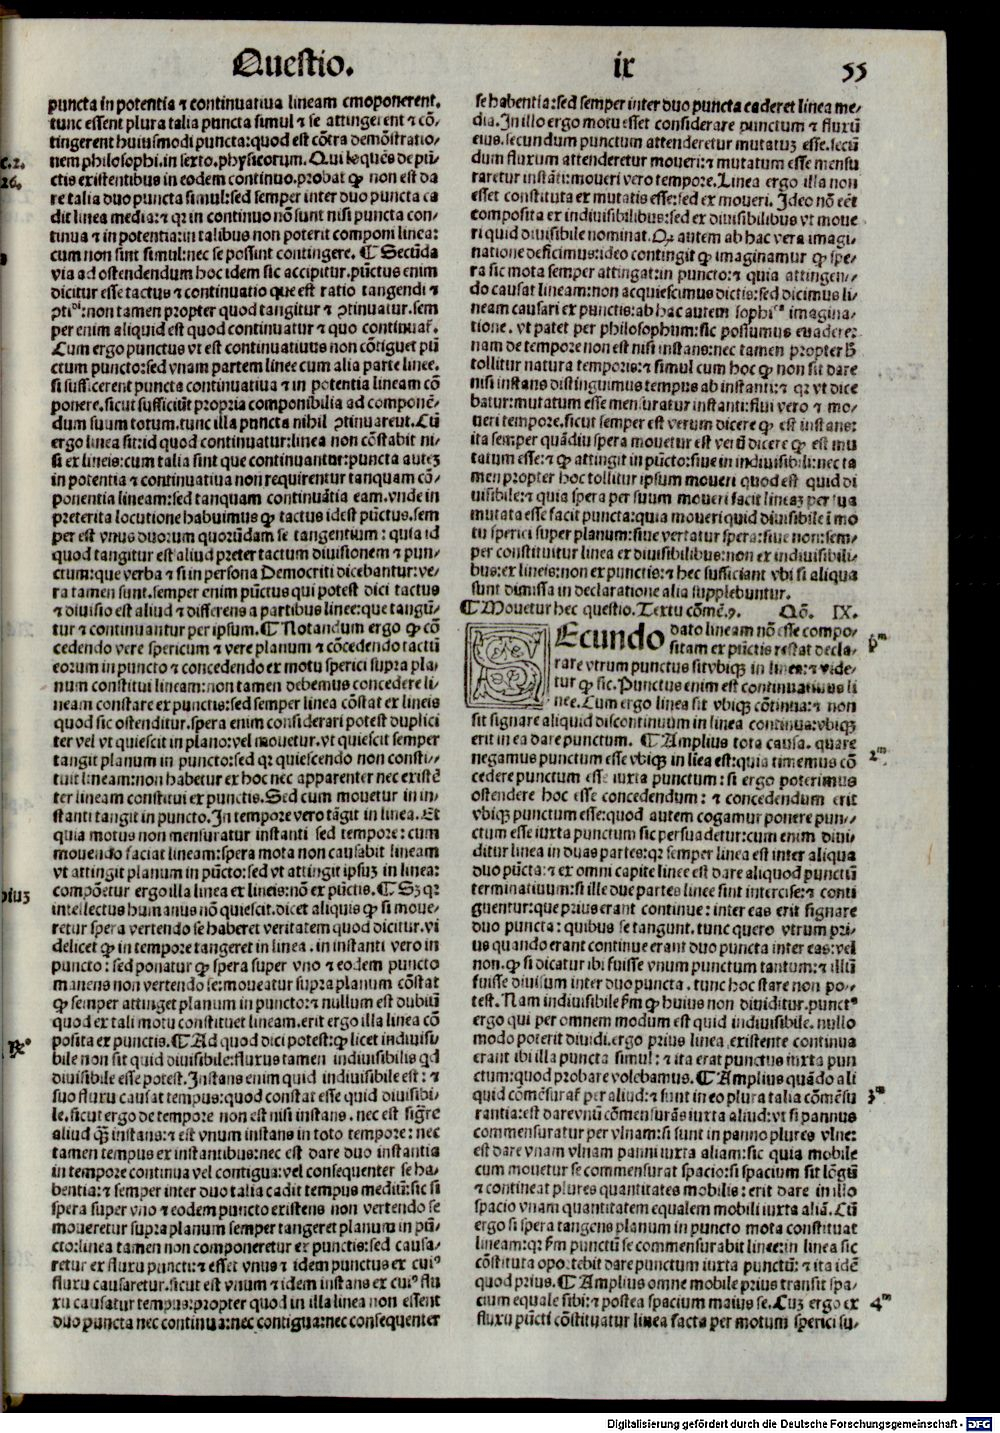 Questio. ix 55
puncta in potentia ⁊ continuatiua lineam cmoponerent.
tunc essent plura talia puncta simul ⁊ se attingerent ⁊ cõ-
tingerent huiusmodi puncta: quod est cõtra demõstratio-
nem philosophi. in sexto. physicorum. Qui loquẽs de pũ-
ctis existentibus in eodem continuo. probat ꝙ non est da
re talia duo puncta simul: sed semper inter duo puncta ca
dit linea media: ⁊ qꝛ in continuo nõ sunt nisi puncta con-
tinua ⁊ in potentia: in talibus non poterit componi linea:
cum non sint simul: nec se possint contingere. ¶ Secũda
via ad ostendendum hoc idem sic accipitur. pũctus enim
dicitur esse tactus ⁊ continuatio que est ratio tangendi ⁊
: non tamen propter quod tangitur ⁊ ꝯtinuatur. sem
per enim aliquid est quod continuatur ⁊ quo continuat̃.
Cum ergo punctus vt est continuatiuus non cõtiguet pũ
ctum puncto: sed vnam partem linee cum alia parte linee.
si sufficerent puncta continuatiua ⁊ in potentia lineam cõ
ponere. sicut sufficiũt propria componibilia ad componẽ-
dum suum totum. tunc illa puncta nihil ꝯtinuarent. Cũ
ergo linea sit id quod continuatur: linea non cõstabit ni-
si ex lineis: cum talia sint que continuantur: puncta autẽ
in potentia ⁊ continuatiua non requirentur tanquam cõ-
ponentia lineam: sed tanquam continuãtia eam. vnde in
preterita locutione habuimus ꝙ tactus idest pũctus. sem
per est vnus duorum quorũdam se tangentium: quia id
quod tangitur est aliud preter tactum diuisionem ⁊ pun-
ctum: que verba ⁊ si in persona Democriti dicebantur: ve-
ra tamen sunt. semper enim pũctus qui potest dici tactus
⁊ diuisio est aliud ⁊ differens a partibus linee: que tangũ-
tur ⁊ continuantur per ipsum. ¶ Notandum ergo ꝙ cõ
cedendo vere spericum ⁊ vere planum ⁊ cõcedendo tactũ
eorum in puncto ⁊ concedendo ex motu sperici supra pla-
num constitui lineam: non tamen debemus concedere li-
neam constare ex punctis: sed semper linea cõstat ex lineis
quod sic ostenditur. spera enim considerari potest duplici
ter vel vt quiescit in plano: vel mouetur. vt quiescit semper
tangit planum in puncto: sed qꝛ quiescendo non consti-
tuit lineam: non habetur ex hoc nec apparenter nec existẽ
ter lineam constitui ex punctis. Sed cum mouetur in in-
stanti tangit in puncto. In tempore vero tãgit in linea. Et
quia motus non mensuratur instanti sed tempore: cum
mouendo faciat lineam: spera mota non causabit lineam
vt attingit planum in pũcto: sed vt attingit ipsuꝫ in linea:
compõetur ergo illa linea ex lineis: nõ ex pũctis. ¶ Sꝫ qꝛ
intellectus humanus nõ quiescit. dicet aliquis ꝙ si moue-
retur spera vertendo se haberet veritatem quod dicitur. vi
delicet ꝙ in tempore tangeret in linea. in instanti vero in
puncto: sed ponatur ꝙ spera super vno ⁊ eodem puncto
manens non vertendo se: moueatur supra planum cõstat
ꝙ semper attinget planum in puncto: ⁊ nullum est dubiũ
quod ex tali motu constituet lineam. erit ergo illa linea cõ
posita ex punctis. ¶ Ad quod dici potest: ꝙ licet indiuisi-
bile non sit quid diuisibile: fluxus tamen indiuisibilis qd
diuisibile esse potest. Instans enim quid indiuisibile est: ⁊
suo fluxu causat tempus: quod constat esse quid diuisibi-
le. sicut ergo de tempore non est nisi instans. nec est sig̃re
aliud qꝫ instans: ⁊ est vnum instans in toto tempore: nec
tamen tempus ex instantibus: nec est dare duo instantia
in tempore continua vel contigua: vel consequenter se ha-
bentia: ⁊ semper inter duo talia cadit tempus mediũ: sic si
spera super vno ⁊ eodem puncto existens non vertendo se
moueretur supra planum semper tangeret planum in pũ-
cto: linea tamen non componeretur ex punctis: sed causa-
retur ex fluxu puncti: ⁊ esset vnus ⁊ idem punctus ex cuiꝰ
fluxu causaretur. sicut est vnum ⁊ idem instans ex cuiꝰ flu
xu causatur tempus: propter quod in illa linea non essent
duo puncta nec continua: nec contigua: nec consequenter
se habentia: sed semper inter duo puncta caderet linea me-
dia. In illo ergo motu esset considerare punctum ⁊ fluxũ
eius. secundum punctum attenderetur mutatuꝫ esse. secũ
dum fluxum attenderetur moueri: ⁊ mutatum esse mensu
raretur instãti: moueri vero tempore. Linea ergo illa non
esset constituta ex mutatis esse: sed ex moueri. Ideo nõ eẽt
composita ex indiuisibilibus: sed ex diuisibilibus vt moue
ri quid diuisibile nominat. Qꝛ autem ab hac vera imagi-
natione deficimus: ideo contingit ꝙ imaginamur ꝙ spe-
ra sic mota semper attingat: in puncto: ⁊ quia attingen-
do causat lineam: non acquiescimus dictis: sed dicimus li-
neam causari ex punctis: ab hac autem imagina-
tione. vt patet per philosophum: sic possumus euadere:
nam de tempore non est nisi instans: nec tamen propter
tollitur natura temporis: ⁊ simul cum hoc ꝙ non sit dare
nisi instans distinguimus tempus ab instanti: ⁊ qꝛ vt dice
batur: mutatum esse mensuratur instanti: flui vero ⁊ mo-
ueri tempore. sicut semper est verum dicere ꝙ est instans:
ita semper quãdiu spera mouetur est verũ dicere ꝙ est mu
tatum esse: ⁊ ꝙ attingit in pũcto: siue in indiuisibili: nec ta
men propter hoc tollitur ipsum moueri quod est quid di
uisibile: ⁊ quia spera per suum moueri facit lineaꝫ per sua
mutata esse facit puncta: quia moueri quid diuisibile ĩ mo
tu sperici super planum: siue vertatur spera: siue non: sem-
per constituitur linea ex diuisibilibus: non ex indiuisibili-
bus: ex lineis: non ex punctis: ⁊ hec sufficiant vbi si aliqua
sunt dimissa in declaratione alia supplebuntur.
¶ Mouetur hec questio. Textu cõmẽ. 9. Qõ. IX.
SEcundo dato lineam nõ esse compo-
sitam ex pũctis restat decla-
rare vtrum punctus sit vbiqꝫ in linea: ⁊ vide-
tur ꝙ sic. Punctus enim est continuatiuus li
nee. Cum ergo linea sit vbiqꝫ cõtinua: ⁊ non
sit signare aliquid discontinuum in linea continua: vbiqꝫ
erit in ea dare punctum. ¶ Amplius tota causa. quare
negamus punctum esse vbiqꝫ in liea est: quia timemus cõ
cedere punctum esse iuxta punctum: si ergo poterimus
ostendere hoc esse concedendum: ⁊ concedendum erit
vbiqꝫ punctum esse: quod autem cogamur ponere pun-
ctum esse iuxta punctum sic persuadetur: cum enim diui-
ditur linea in duas partes: qꝛ semper linea est inter aliqua
duo pũcta: ⁊ ex omni capite linee est dare aliquod punctũ
terminatiuum: si ille due partes linee sunt intercise: ⁊ conti
guentur: que prius erant continue: inter eas erit signare
duo puncta: quibus se tangunt. tunc quero vtrum pri-
us quando erant continue erant duo puncta inter eas: vel
non. ꝙ si dicatur ibi fuisse vnum punctum tantum: ⁊ illũ
fuisse diuisum inter duo puncta. tunc hoc stare non po-
test. Nam indiuisibile ꝙ huius non diuiditur. punctꝰ
ergo qui per omnem modum est quid indiuisibile. nullo
modo poterit diuidi. ergo prius linea existente continua
erant ibi illa puncta simul: ⁊ ita erat punctus iuxta pun
ctum: quod probare volebamus. ¶ Amplius quãdo ali
quid cõmẽsurat̃ per aliud: ⁊ sunt in eo plura talia cõmẽsu
rantia: est dare vnũ cõmensurãs iuxta aliud: vt si pannus
commensuratur per vlnam: si sunt in panno plures vlne:
est dare vnam vlnam panni iuxta aliam: sic quia mobile
cum mouetur se commensurat spacio: si spacium sit lõgũ
⁊ contineat plures quantitates mobilis: erit dare in illo
spacio vnam quantitatem equalem mobili iuxta aliã. Cũ
ergo si spera tangens planum in puncto mota constituat
lineam: qꝛ punctũ se commensurabit linee: in linea sic
cõstituta oportebit dare punctum iuxta punctũ: ⁊ ita idẽ
quod prius. ¶ Amplius omne mobile prius transit spa-
cium equale sibi: ⁊ postea spacium maius se. Cuꝫ ergo ex
fluxu pũcti cõstituatur linea facta per motum sperici su-
c. 2.
26.
piuꝫ
℞º
pᵐ
2ᵐ
3ᵐ
4ᵐ
Digitalisierung gefördert durch die Deutsche Forschungsgemeinschaft - DFG